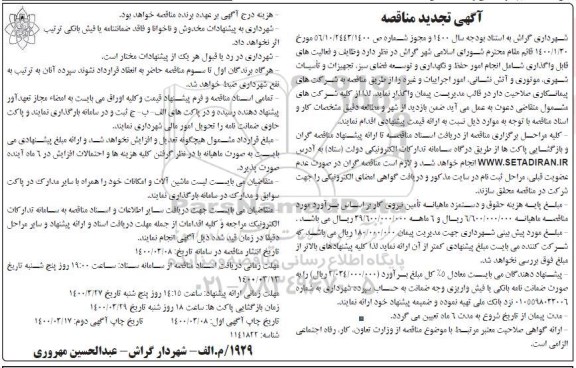 آگهی تجدید مناقصه
شهرداری گراش به استناد بودجه سال ۱۴۰۰ و مجوز شماره ص ۵۶/۱۰/۲۴۴۲/۱۴۰۰ مورخ
۱۴۰۰/۱/۳۰ قائم مقام محترم شورای اسلامی شهر گراش در نظر دارد وظایف و فعالیت های
قابل واگذاری شامل انجام امور حفظ و نگهداری و توسعه فضای سبز، تجهیزات و تأسیسات
شهری، موتوری و آتش نشانی، امور اجراییات و غیره را از طریق مناقصه به شرکت های
پیمانکاری صلاحیت دار در قالب مدیریت پیمان واگذار نماید. لذا از کلیه شرکت های
مشمول متقاضی دعوت به عمل می آید ضمن بازدید از شهر و مطالعه دقیق مشخصات کار و
اسناد مناقصه با توجه به موارد ذیل نسبت به ارائه قیمت پیشنهادی اقدام نمایند.
- کلیه مراحل برگزاری مناقصه از دریافت اسناد مناقصه تا ارائه پیشنهاد مناقصه گران
و بازگشایی پاکت ها از طریق درگاه سامانه تدارکات الکترونیکی دولت (ستاد) به آدرس
WWW.SETADIRAN.IR انجام خواهد شد و لازم است مناقصه گران در صورت عدم
عضویت قبلی، مراحل ثبت نام در سایت مذکور و دریافت گواهی امضای الکترونیکی را جهت
شرکت در مناقصه محقق سازند.
- مبلغ پایه هزینه حقوق و دستمزد ماهیانه تأمین نیروی کار را برای برآورد مورد
مناقصه ماهیانه ۶/۶۰۰/۰۰۰/۰۰۰ ریال و ۶ ماهه ۳۹/۶۰۰/۰۰۰/۰۰۰ ریال می باشد.
- مبلغ مورد پیش بینی شهرداری جهت مدیریت پیمان ۱۸۰/۰۰۰/۰۰۰ ریال می باشد که
شرکت کننده می بایست مبلغ پیشنهادی کمتر از آن ارائه نماید لذا کلیه پیشنهادهای بالاتر از
مبلغ فوق بررسی نخواهد شد.
- پیشنهاد دهندگان می بایست معادل ۵٪ کل مبلغ برآورد ریال را به
صورت ضمانت نامه بانکی یا فیش واریزی وجه ضمانت به حساب سپرده شهرداری به شماره
۰۱۰۵۵۹۸۰۲۲۰۰۶ نزد بانک ملی تهیه نموده و ضمیمه پیشنهاد خود ارائه نمایند.
- مدت پیمان از تاریخ شروع به مدت ۶ ماه تعیین می گردد.
- ارائه گواهی صلاحیت معتبر مرتبط با موضوع مناقصه از وزارت تعاون، کار، رفاه اجتماعی
الزامی است.
- هزینه درج آگهی بر عهده برنده مناقصه خواهد بود.
- شهرداری به پیشنهادات مخدوش و ناخوانا و فاقد ضمانتنامه یا فیش بانکی ترتیب
اثر نخواهد داد.
- شهرداری در رد یا قبول هر یک از پیشنهادات مختار است.
- هرگاه برندگان اول تا سوم مناقصه حاضر به انعقاد قرارداد نشوند سپرده آنان به ترتیب به
نفع شهرداری ضبط خواهد شد.
- تمامی اسناد مناقصه و فرم پیشنهاد قیمت و کلیه اوراق می بایست به امضاء مجاز تعهدآور
پیشنهاد دهنده رسیده و در پاکت های الف - ب - ج ثبت و در سامانه بارگذاری نمایند و پاکت
حاوی ضمانت نامه را تحویل امور مالی شهرداری نمایند.
- مبلغ قرارداد مشمول هیچگونه تعدیل و افزایش نخواهد شد. و ارائه مبلغ پیشنهادی می
بایست به صورت ماهیانه با در نظر گرفتن کلیه هزینه ها و احتمالات افزایش در ۶ ماه آینده
صورت پذیرد.
- متقاضیان می بایست لیست ماشین آلات و امکانات خود را همراه با سایر مدارک در پاکت
سوابق و مدارک در سامانه بارگذاری نمایند.
- متقاضیان می بایست جهت دریافت سایر اطلاعات و اسناد مناقصه به سامانه تدارکات
الکترونیک مراجعه و کلیه اقدامات از جمله مهلت دریافت اسناد و ارائه پیشنهاد و سایر مراحل
دقیقا در زمان قید شده ذیل آگهی انجام نمایند.
تاریخ انتشار مناقصه در سامانه تاریخ ۱۴۰۰/۰۳/۰۸
مهلت زمانی دریافت اسناد مناقصه از سامانه ستاد: ساعت ۱۹:۰۰ روز پنج شنبه تاریخ
۱۴۰۰/۰۳/۱۳
مهلت زمانی ارائه پیشنهاد: ساعت ۱۴:۱۵ روز پنج شنبه تاریخ ۱۴۰۰/۰۳/۲۷
زمان بازگشایی پاکت ها: ساعت ۱۸ روز شنبه تاریخ ۱۴۰۰/۰۳/۲۹
تاریخ چاپ آگهی اول: ۱۴۰۰/۰۳/۰۸ تاریخ چاپ آگهی دوم: ۱۴۰۰/۰۳/۱۷
شناسه: ۱۱۴۱۸۲۲
۱۹۲۹/م.الف - شهردار گراش - عبدالحسین مهروری